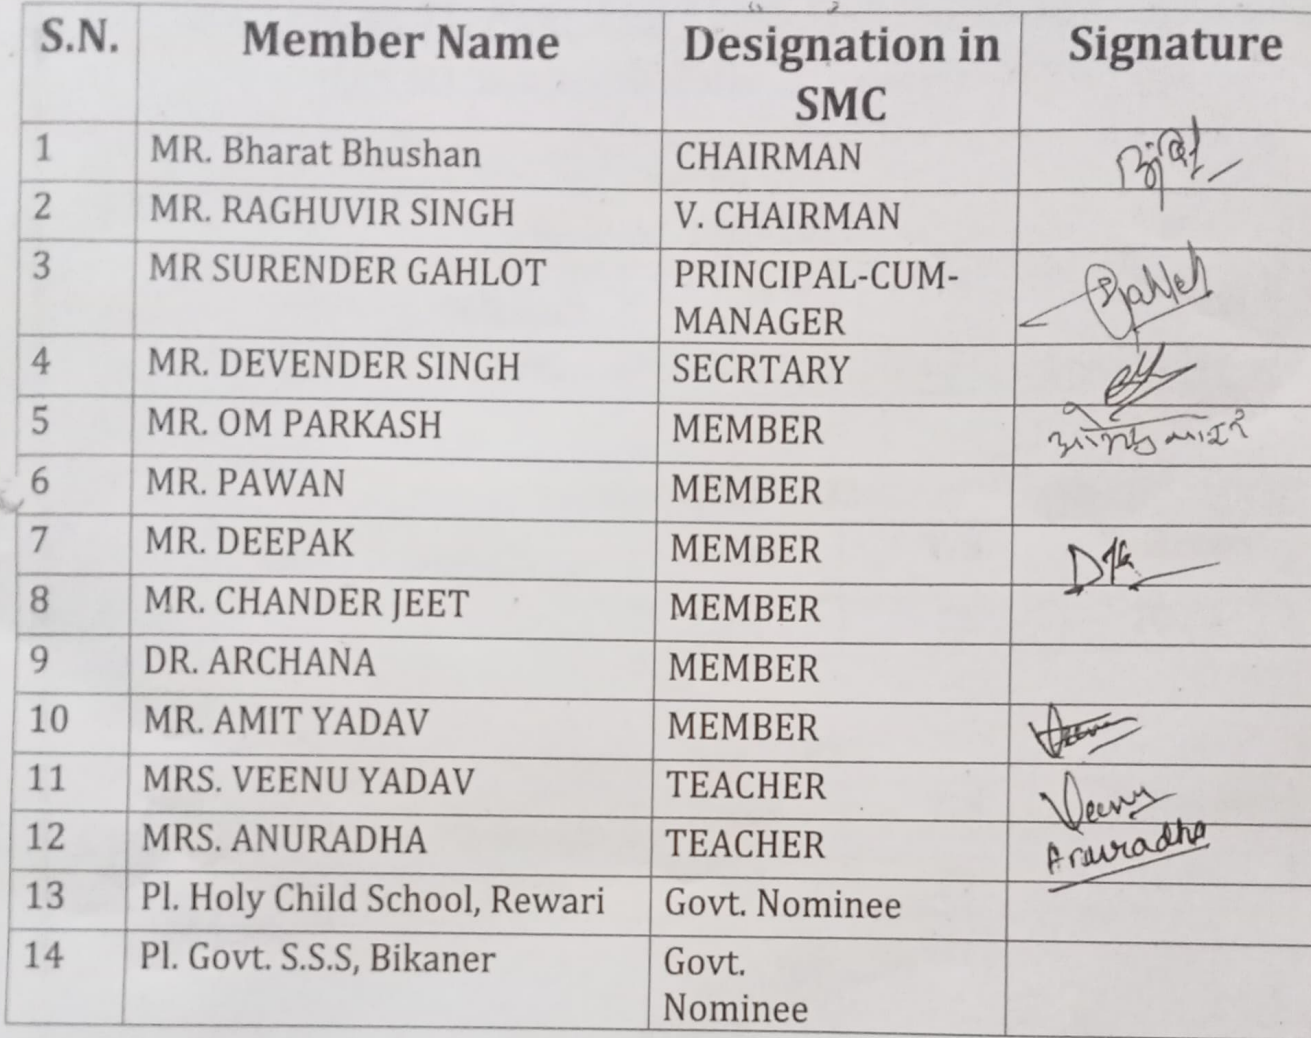 S.N. Member Name Designation in Signature
SMC
1 MR. Bharat Bhushan CHAIRMAN
2 MR. RAGHUVIR SINGH V. CHAIRMAN
3 MR SURENDER GAHLOT PRINCIPAL-CUM-
MANAGER
4 MR. DEVENDER SINGH SECRTARY
5 MR. OM PARKASH MEMBER
6 MR. PAWAN MEMBER
7 MR. DEEPAK MEMBER
8 MR. CHANDER JEET MEMBER
9 DR. ARCHANA MEMBER
10 MR. AMIT YADAV MEMBER
11 MRS. VEENU YADAV TEACHER Veenu
12 MRS. ANURADHA TEACHER Anuradha
13 Pl. Holy Child School, Rewari Govt. Nominee
14 Pl. Govt. S.S.S, Bikaner Govt.
Nominee